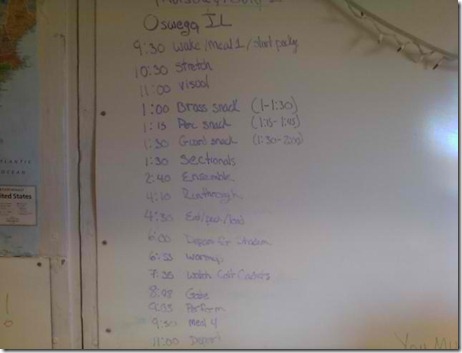 Oswego IL
9:30 Wake/Meal 1/Start packing
10:30 Stretch
11:00 Visual
1:00 Brass snack (1-1:30)
1:15 Perc snack (1:15-1:45)
1:30 Guard snack (1:30-2:00)
1:30 Sectionals
2:40 Ensemble
4:10 Runthrough
4:30 Eat/pea/load
6:00 Depart for Stadium
6:55 Warmup
7:35 Watch Colt Cadets
8:48 Gate
9:05 Perform
9:30 Meal 4
11:00 Depart
ATLANTIC
OCEAN
United States
You